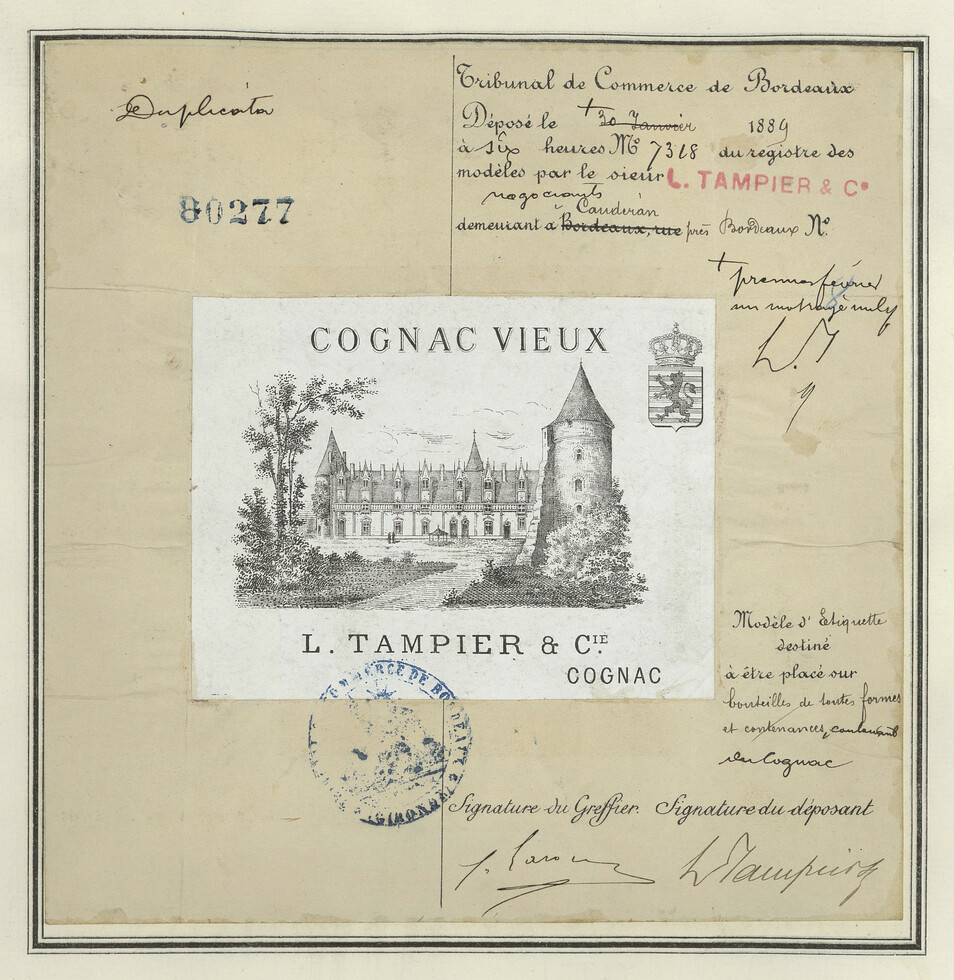 Duplicata
80277
Tribunal de Commerce de Bordeaux
Déposé le + 30 Janvier 1889
à six heures No 7318 du registre des
modèles par le sieur L. TAMPIER & Co
négociants
Caudéran
demeurant à Bordeaux, rue près Bordeaux No.
+ premier février
un mot rayé nul
L. T
COGNAC VIEUX
L. TAMPIER & CIE.
COGNAC
Modèle d'Etiquette
destiné
à être placé sur
bouteilles de toutes formes
et contenances, contenant
du Cognac
COMMERCE DE BORDEAUX
GIRONDE
Signature du Greffier. Signature du déposant
L Tampier